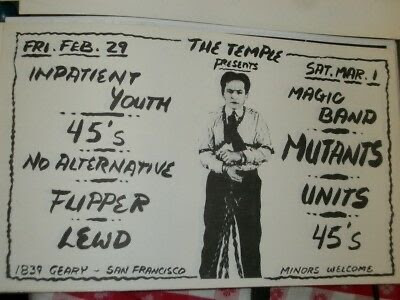 FRI. FEB. 29
INPATIENT
YOUTH
45's
NO ALTERNATIVE
FLIPPER
LEWD
THE TEMPLE
PRESENTS
SAT. MAR. 1
MAGIC
BAND
MUTANTS
UNITS
45's
1839 GEARY - SAN FRANCISCO
MINORS WELCOME